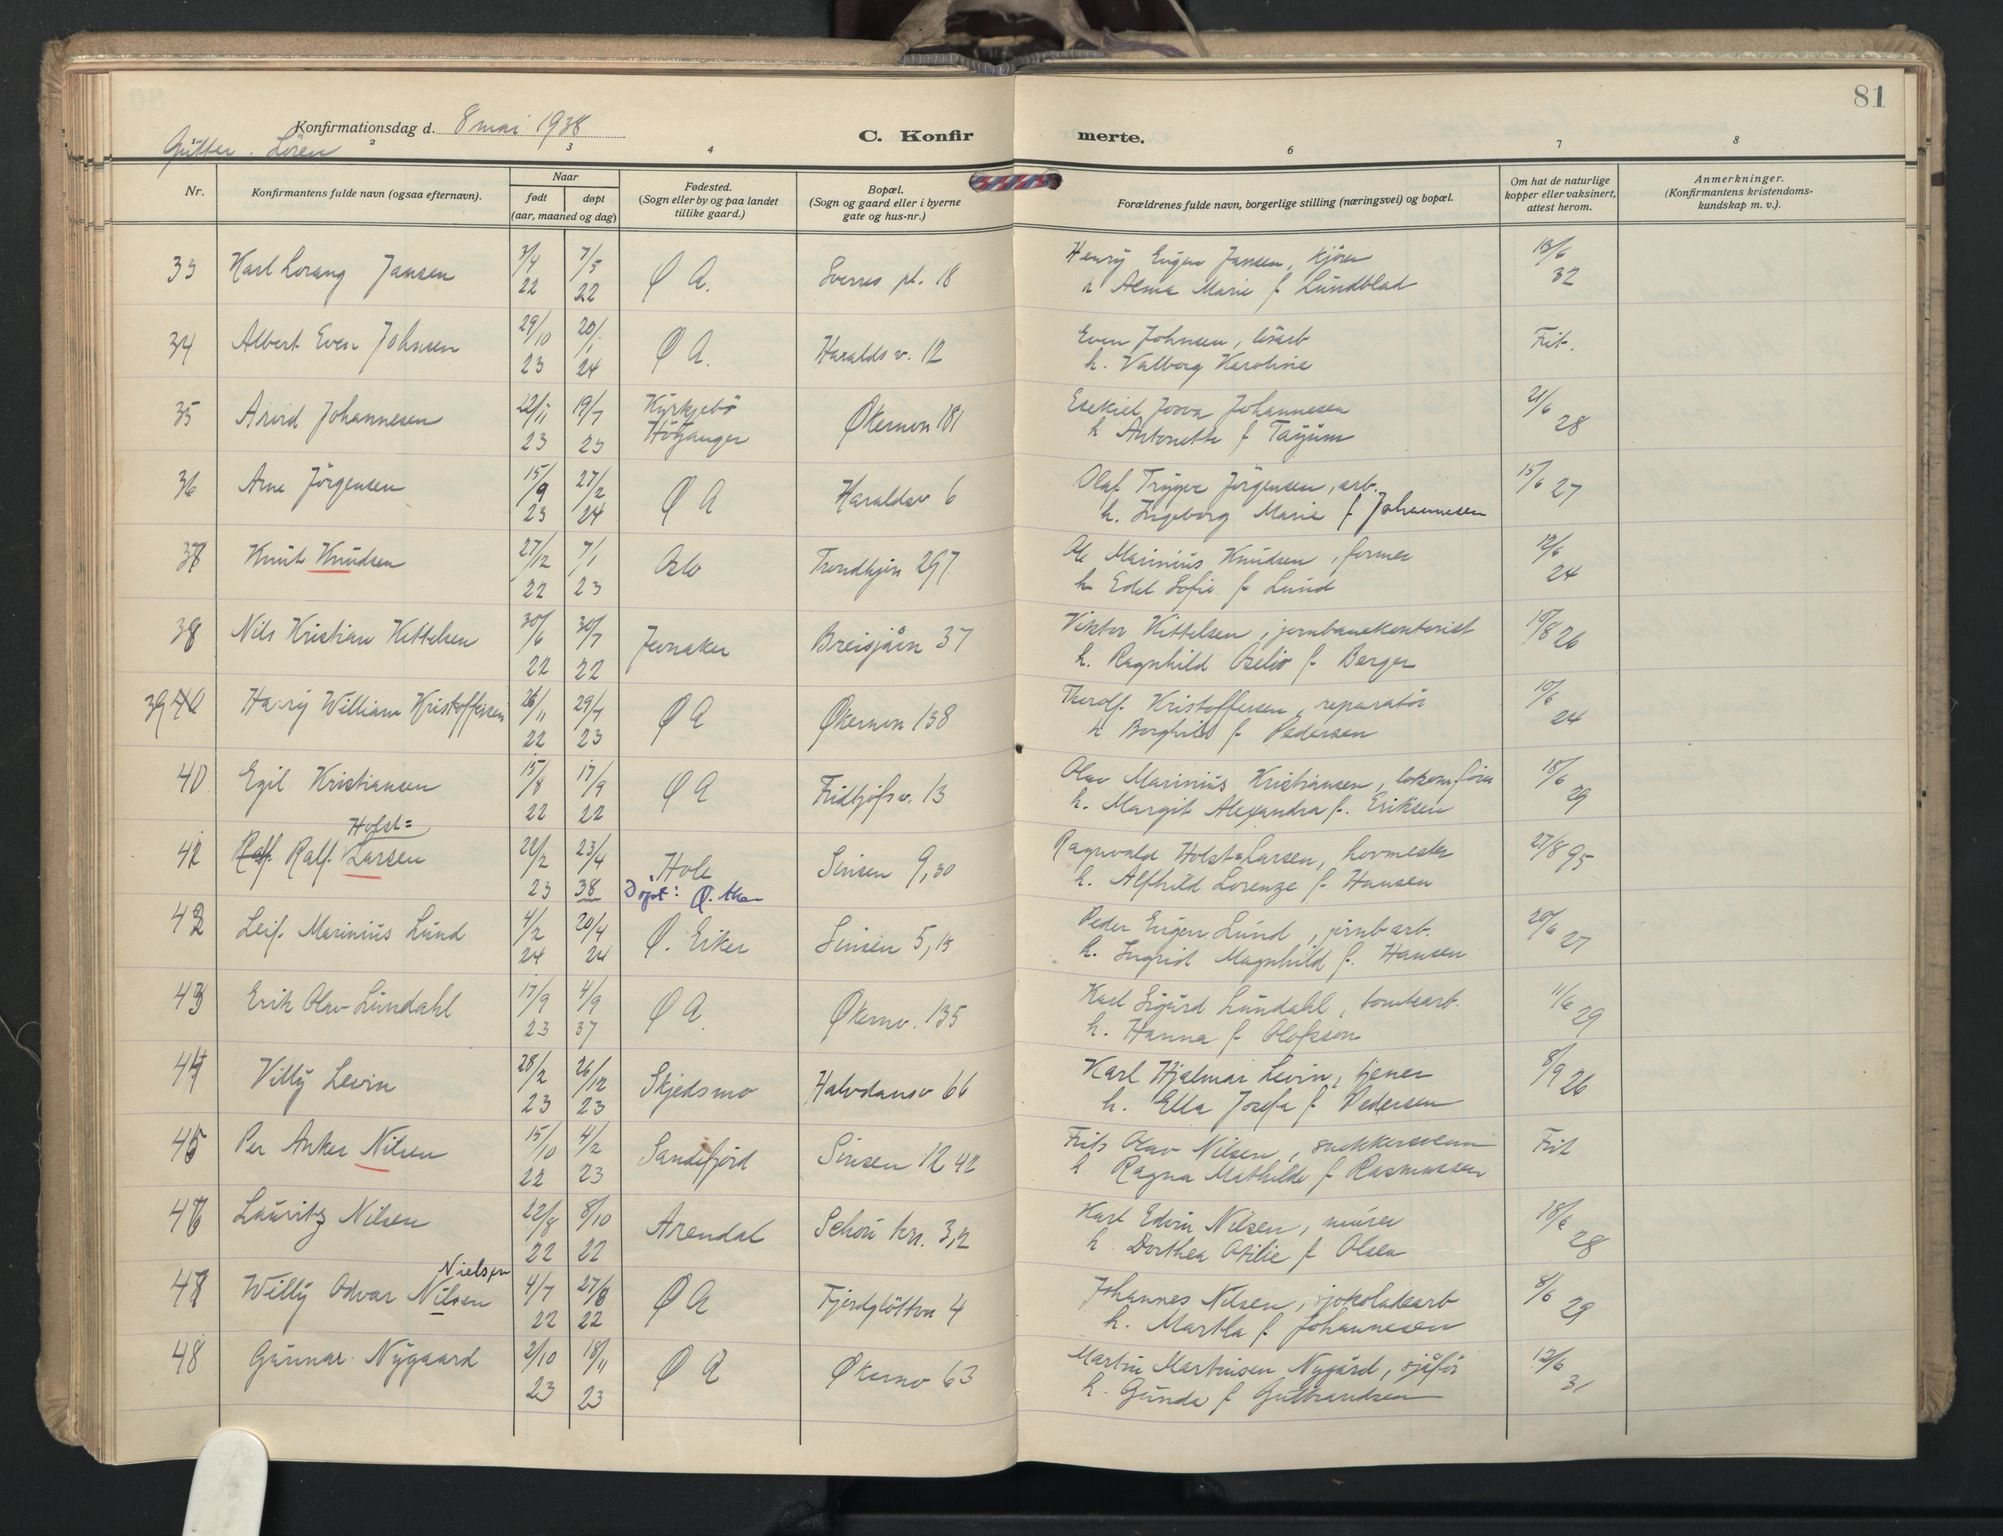 81
Konfirmationsdag d. 8 mai 1938
Gutter. Lören
C. Konfirmerte.
2 3 4 6 7 8
Nr.
Konfirmantens fulde navn (ogsaa efternavn).
Naar
født døpt
(aar, maaned og dag)
Fødested.
(Sogn eller by og paa landet
tillike gaard.)
Bopæl.
(Sogn og gaard eller i byerne
gate og hus-nr.)
Forældrenes fulde navn, borgerlige stilling (næringsvei) og bopæl.
Om hat de naturlige
kopper eller vaksinert,
attest herom.
Anmerkninger.
(Konfirmantens kristendoms-
kundskap m. v.).
33 Karl Lorang Jansen 3/4 22 7/5 22 Ø A. Sverres pl. 18 Henry Eugen Jansen, kjörer 13/6 32
h Alma Marie f Lundblad
34 Albert Even Johnsen 29/10 23 20/1 24 Ø A. Haralds v. 12 Even Johnsen, lösarb Frit.
h. Valborg Karoline
35 Arvid Johannesen 22/11 23 19/7 23 Kyrkjebö Økernvn 181 Esekiel Johannesen 21/6 28
Höyanger h Antonette f
36 Arne Jörgensen 15/9 23 27/2 24 Ø A Haraldsv 6 Olaf Trygve Jörgensen, arb. 15/6 27
h. Ingeborg Marie f Johannesen
37 Knut Knudsen 27/12 22 7/1 23 Oslo Trondhjvn 297 Ole Marinius Knudsen, former 12/6 24
h Edel Sofie f Lund
38 Nils Kristian Kittelsen 30/6 22 30/7 22 Jevnaker Breisjåvn 37 Viktor Kittelsen, jernbanekontorist 10/8 26
h. Ragnhild Oselio f. Berger
39 40 Harry William Kristoffersen 26/11 22 29/7 23 Ø A Økernvn 138 Thorolf Kristoffersen, reparatör 10/6 24
h Borghild f Pedersen
40 Egil Kristiansen 15/8 22 17/9 22 Ø A Fridtjofs v. 13 Olav Marinius Kristiansen, lokom.förer 18/6 29
h. Margit Alexandra f. Eriksen
Holst=
41 Ralf Ralf. Larsen 22/2 23 23/4 38 Hole Sinsen 9,30 Ragnvald Holst=Larsen, hovmester 27/8 95
Døpt: Ø. Aker h. Alfhild Lorenze f- Hansen
42 Leif. Marinius Lund 4/2 24 20/4 24 Ø. Eiker Sinsen 5,15 Peder Eugen Lund, jernb arb. 20/6 27
h. Ingrid Magnhild f. Hansen
43 Erik Olav Lundahl 17/9 23 4/9 37 Ø A. Økernv. 135 Karl Sigurd Lundahl, tomtearb. 11/6 29
h. Hanna f Olofsson
44 Villy Levin 28/2 23 26/12 23 Skjedsmo Halvdansv 66 Karl Hjalmar Levin, tjener 8/9 26
h. Ella Josefa f Pedersen
45 Per Anker Nilsen 15/10 22 4/2 23 Sandefjord Sinsen 12 42 Frits Olav Nilsen, snekkersvenn Frit
h Ragna Mathilde f Rasmussen
46 Lauritz Nilsen 22/8 22 8/10 22 Arendal Schou kv. 3,2 Karl Edvin Nilsen, murer 18/6 28
h. Dorthea Otilie f Olsen
Nielsen
47 Willy Odvar Nilsen 4/7 22 27/8 22 Ø A Fjerdgløttvn 4 Johannes Nilsen, sjokoladearb 8/6 29
h. Martha f Johannesen
48 Gunnar Nygaard 2/10 23 18/11 23 Ø A Økernv 63 Martin Martinsen Nygård, sjåför 12/6 31
h. Gunda f Gulbrandsen